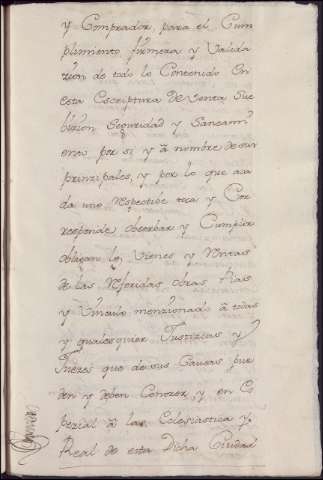 y Comprador, para el Cum
plimiento firmeza y Valida
zion de todo lo Contenido En
esta Escriptura de Venta Sue
Seguridad y Saneami
ento por si y a nombre de sus
prinzipales, y por lo que a ca
da uno Respectibe toca y Cor
responde obserbar y Cumplir
obligan los Vienes y Rentas
de las Referidas obras Pias
y Vinculo menzionado a todas
y qualesquier Justizias y
Juezes que de sus Causas pue
den y deben Conozer, y en Es
pezial a las Eclesiastica y
Real de esta Dicha Ciudad